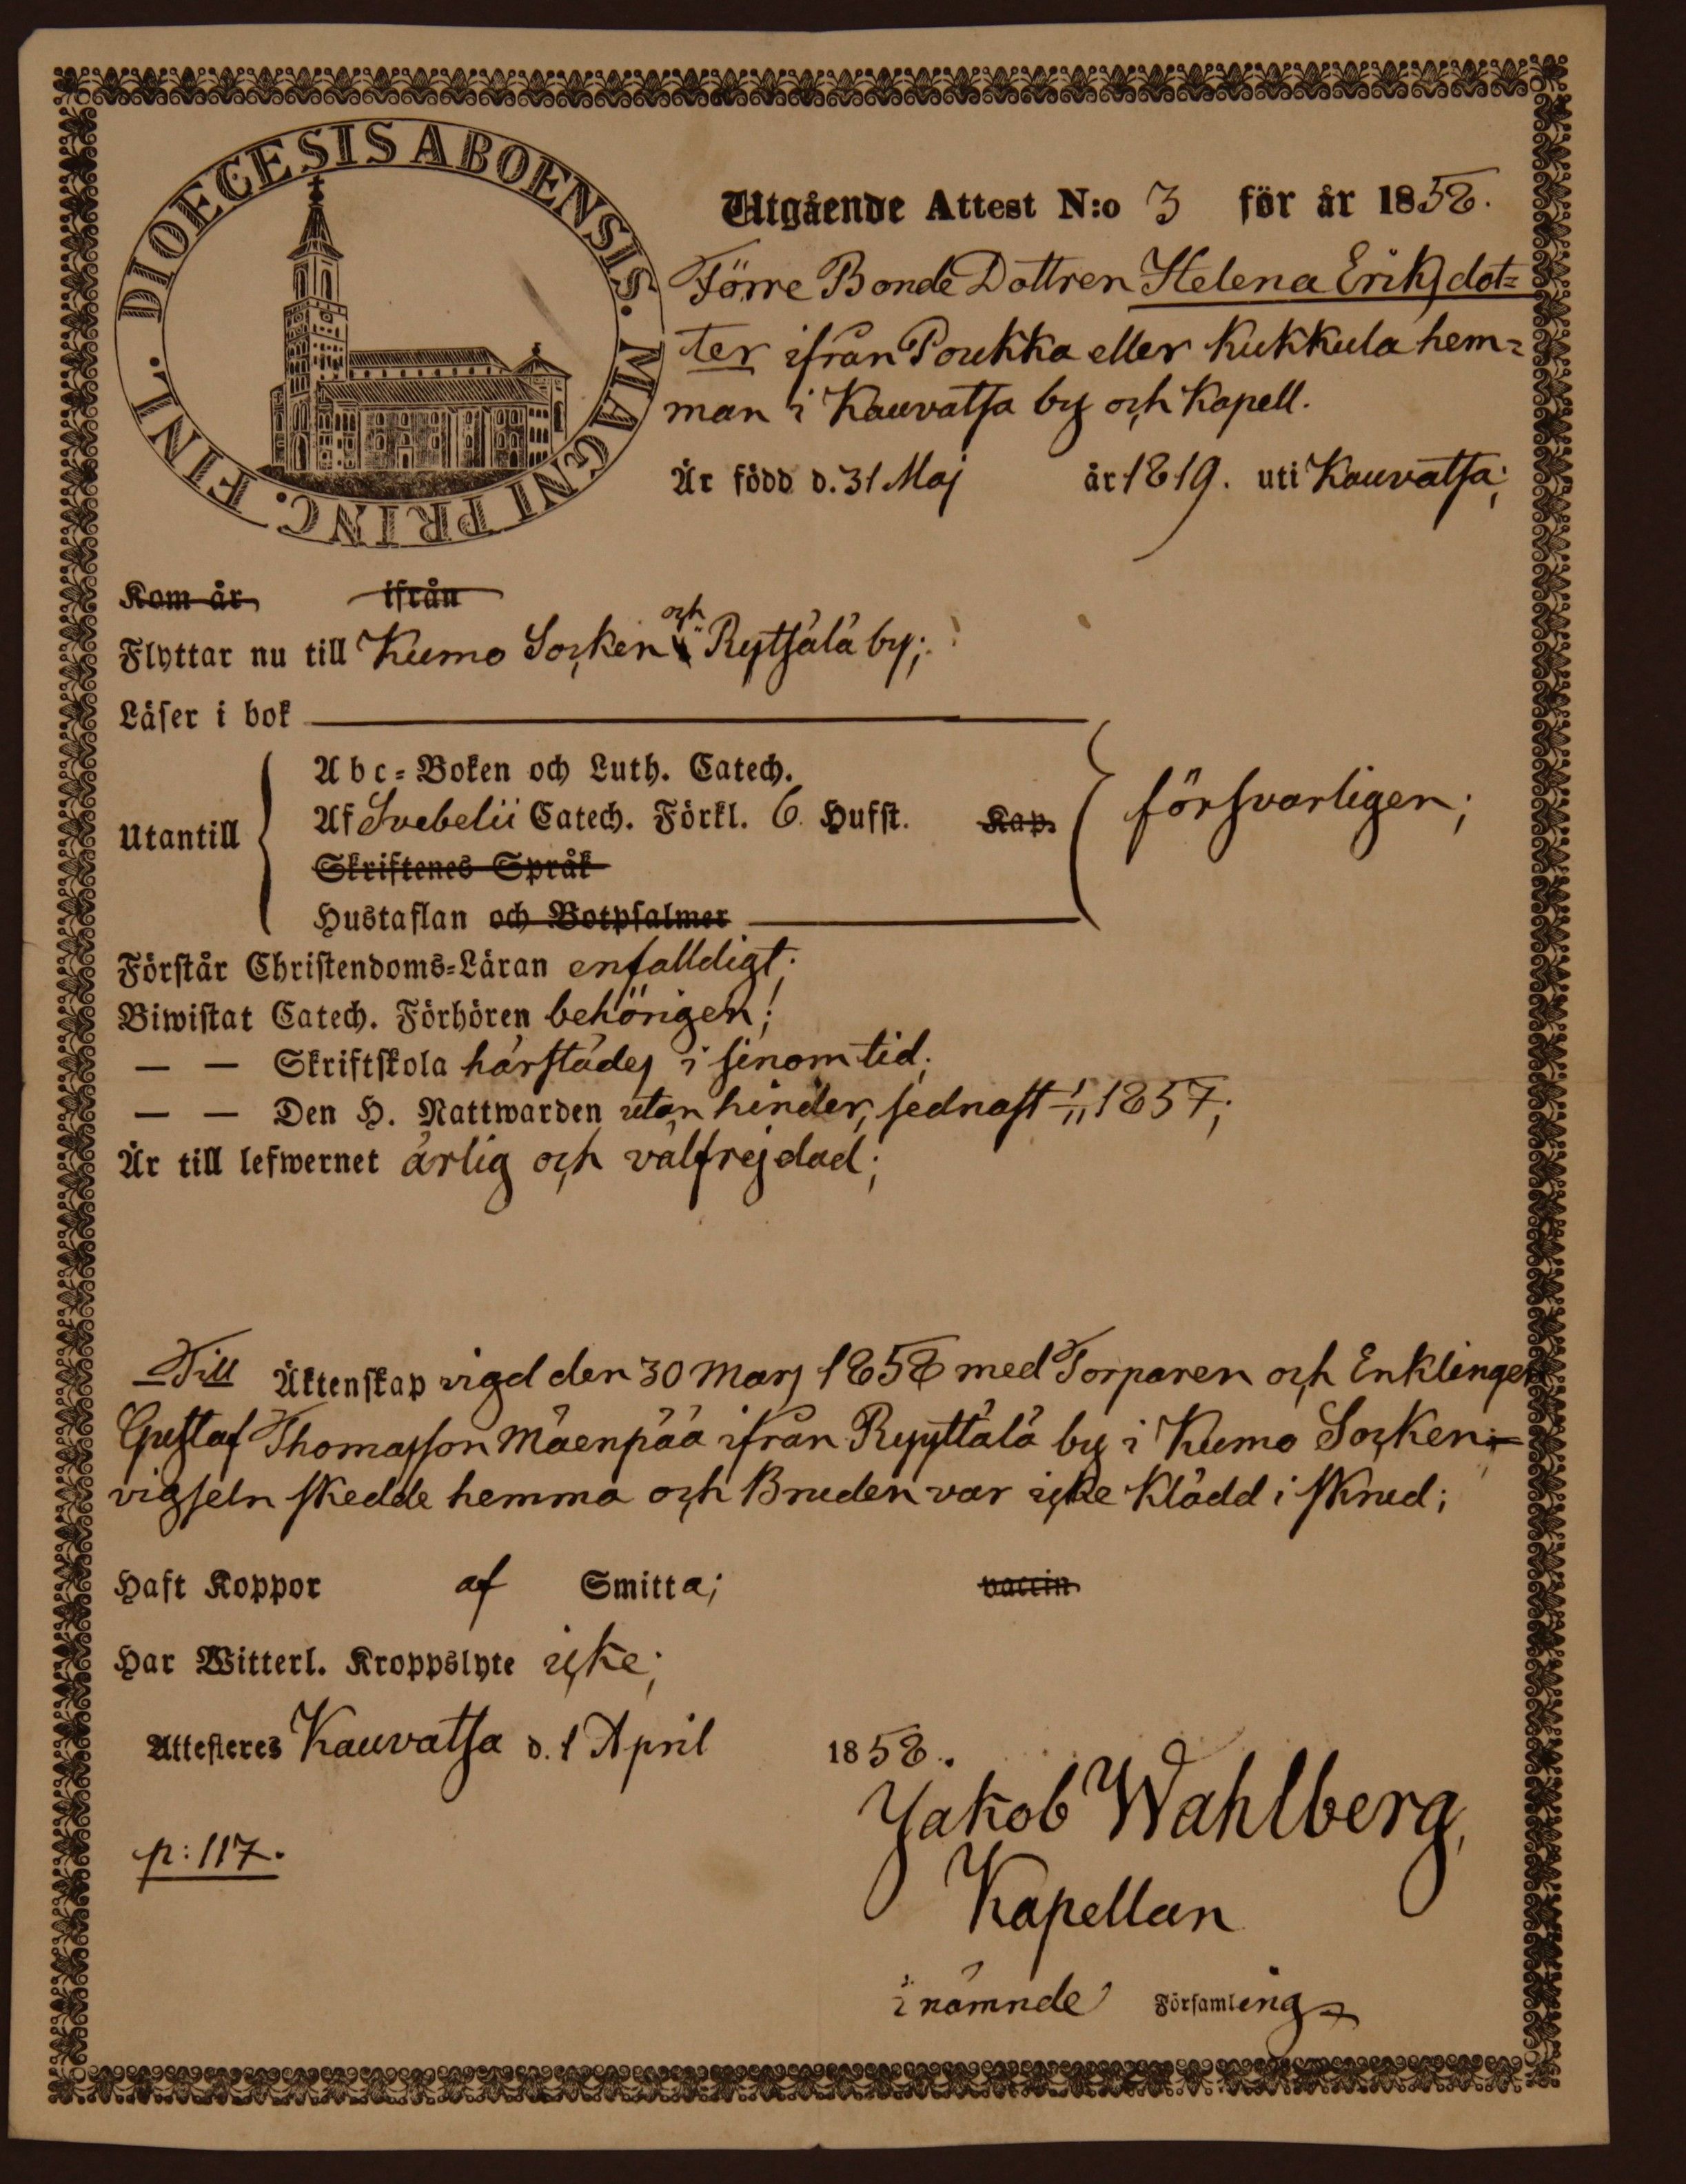 DIOECESIS ABOENSIS. MAGNI PRINC. FINL.
Utgående Attest N:o 3 för år 1858.
Förre Bonde Dottren Helena Eriksdot=
ter ifrån Poukka eller Kukkula hem=
man i Kauvatsa by och Kapell.
Är född d. 31 Maj år 1819. uti Kauvatsa;
Kom år ifrån
Flyttar nu till Kumo Socken och Rytsälä by;
Läser i bok
Utantill
Abc=Boken och Luth. Catech.
Af Svebelii Catech. Förkl. 6 Hufst. Kap.
Skriftenes Språk
Hustaflan och Botpsalmer
försvarligen;
Förstår Christendoms=Läran enfalldigt;
Biwistat Catech. Förhören behörigen;
— — Skriftskola härstädes i sinom tid;
— — Den H. Nattwarden utan hinder, sednast 1/11 1857;
Är till lefwernet ärlig och välfrejdad;
Till Äktenskap vigd den 30 Mars 1858 med Torparen och Enklingen
Gustaf Thomasson Mäenpää ifrån Ryyttälä by i Kumo Socken;
vigseln skedde hemma och Bruden var icke klädd i skrud;
Haft Koppor af Smitta; vaccin
Har Witterl. Kroppslyte icke;
Attesteres Kauvatsa d. 1 April 1858.
Jakob Wahlberg,
Kapellan
p: 117.
i nämnde Församling